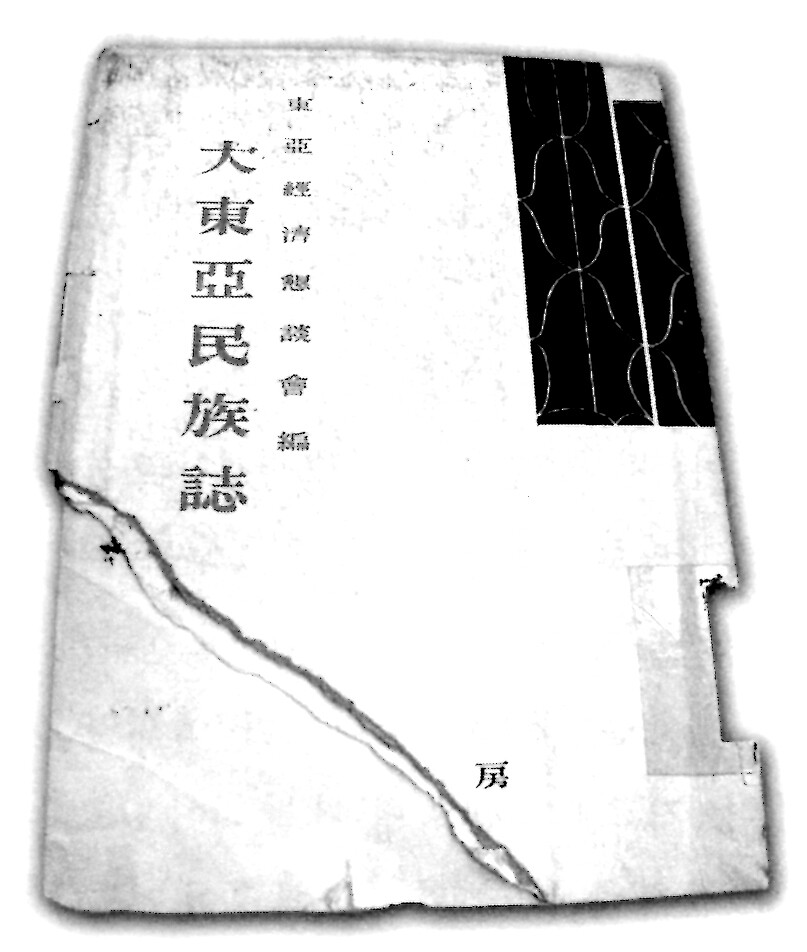 東亞經濟懇談會編
大東亞民族誌
房